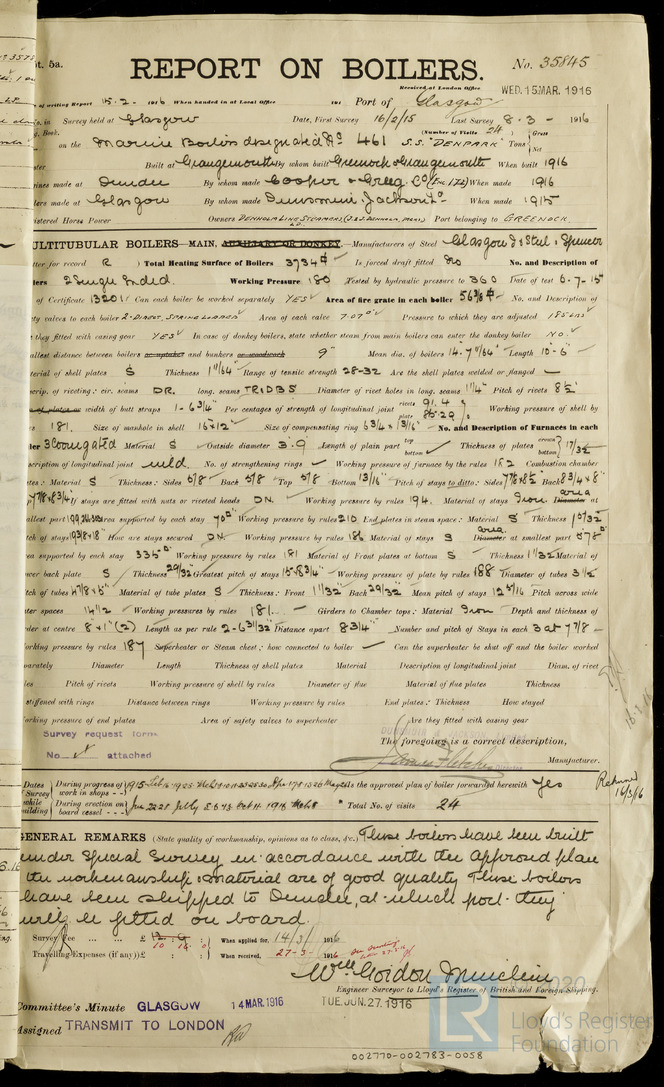 pt. 5a.
REPORT ON BOILERS.
No. 35845
Received at London Office WED. 15 MAR. 1916
of writing Report 15-2- 1916 When handed in at Local Office 191 Port of Glasgow
in Survey held at Glasgow Date, First Survey 16/2/15 Last Survey 8-3- 1916
Book. (Number of Visits 24)
on the Marine Boilers designated No 461 S.S. "DENPARK" Tons Gross Net
Built at Grangemouth By whom built Greenock & Grangemouth When built 1916
made at Dundee By whom made Cooper & Greig Co (Eng 172) When made 1916
made at Glasgow By whom made Dunsmuir & Jackson Ld When made 1915
Horse Power Owners DENHOLM LINE STEAMERS LD (J. & J. DENHOLM, MGRS) Port belonging to GREENOCK
MULTITUBULAR BOILERS MAIN, AUXILIARY OR DONKEY. Manufacturers of Steel Glasgow I & Steel & Spencer
for record R Total Heating Surface of Boilers 3734 Is forced draft fitted No No. and Description of
2 Single Ended. Working Pressure 180 Tested by hydraulic pressure to 360 Date of test 6-7-15
of Certificate 13201 Can each boiler be worked separately YES Area of fire grate in each boiler 56 No. and Description of
valves to each boiler 2 - DIRECT, SPRING LOADED Area of each valve 7.07 Pressure to which they are adjusted 185 LBS
they fitted with easing gear YES In case of donkey boilers, state whether steam from main boilers can enter the donkey boiler NO.
smallest distance between boilers or uptakes and bunkers or woodwork 9" Mean dia. of boilers 14-7 11/64" Length 10-6"
of shell plates S Thickness 1 11/64" Range of tensile strength 28-32 Are the shell plates welded or flanged
of riveting: cir. seams DR. long. seams TR.D.B.S Diameter of rivet holes in long. seams 1 1/4" Pitch of rivets 8 1/2
of plates or width of butt straps 1-6 3/4" Per centages of strength of longitudinal joint rivets 91.4 plate 85.29 Working pressure of shell by
181. Size of manhole in shell 16x12" Size of compensating ring 6 3/4 x 1 3/16" No. and Description of Furnaces in each
3 Corrugated Material S Outside diameter 3-9 Length of plain part top bottom Thickness of plates crown bottom 17/32
of longitudinal joint weld. No. of strengthening rings Working pressure of furnace by the rules 182 Combustion chamber
Material S Thickness: Sides 5/8 Back 5/8 Top 5/8 Bottom 13/16" Pitch of stays to ditto: Sides 7 7/8 x 8 1/2 Back 8 3/4 x 8"
7 7/8 x 8 3/4 If stays are fitted with nuts or riveted heads DN. Working pressure by rules 194. Material of stays Iron. Diameter area at
smallest part Area supported by each stay 70 Working pressure by rules 210 End plates in steam space: Material S Thickness 1 5/32
of stays How are stays secured DN Working pressure by rules 186 Material of stays S Diameter area at smallest part
supported by each stay 335 Working pressure by rules 181 Material of Front plates at bottom S Thickness 1 1/32 Material of
back plate S Thickness 29/32 Greatest pitch of stays 15 x 8 3/4" Working pressure of plate by rules 188 Diameter of tubes 3 1/2
of tubes 4 7/8 x 5" Material of tube plates S Thickness: Front 1 1/32 Back 29/32 Mean pitch of stays Pitch across wide
water spaces 14 1/2 Working pressures by rules 181 Girders to Chamber tops: Material Iron Depth and thickness of
at centre 8" x 1" (2) Length as per rule 2-6 31/32 Distance apart 8 3/4" Number and pitch of Stays in each 3 at 7 7/8
working pressure by rules 187 Superheater or Steam chest; how connected to boiler Can the superheater be shut off and the boiler worked
separately Diameter Length Thickness of shell plates Material Description of longitudinal joint Diam. of rivet
Pitch of rivets Working pressure of shell by rules Diameter of flue Material of flue plates Thickness
stiffened with rings Distance between rings Working pressure by rules End plates: Thickness How stayed
working pressure of end plates Area of safety valves to superheater Are they fitted with easing gear
Survey request form
No. attached
The foregoing is a correct description,
James Fletcher Manufacturer.
16.3.16
Dates of Survey while building
During progress of work in shops - -
During erection on board vessel - - -
Is the approved plan of boiler forwarded herewith Yes
Total No. of visits 24
Returned 16/3/16
GENERAL REMARKS (State quality of workmanship, opinions as to class, &c.) These boilers have been built
under Special Survey in accordance with the approved plan
the workmanship & material are of good quality These boilers
have been shipped to Dundee, at which port they
will be fitted on board.
Survey Fee ... ... £ When applied for, 14/3/1916
Travelling Expenses (if any) £ : : When received, 27-3- 1916
Engineer Surveyor to Lloyd's Register of British and Foreign Shipping.
Committee's Minute GLASGOW 14 MAR. 1916 TUE. JUN. 27. 1916
Assigned TRANSMIT TO LONDON
LR
Lloyd's Register
Foundation
002770-002783-0058